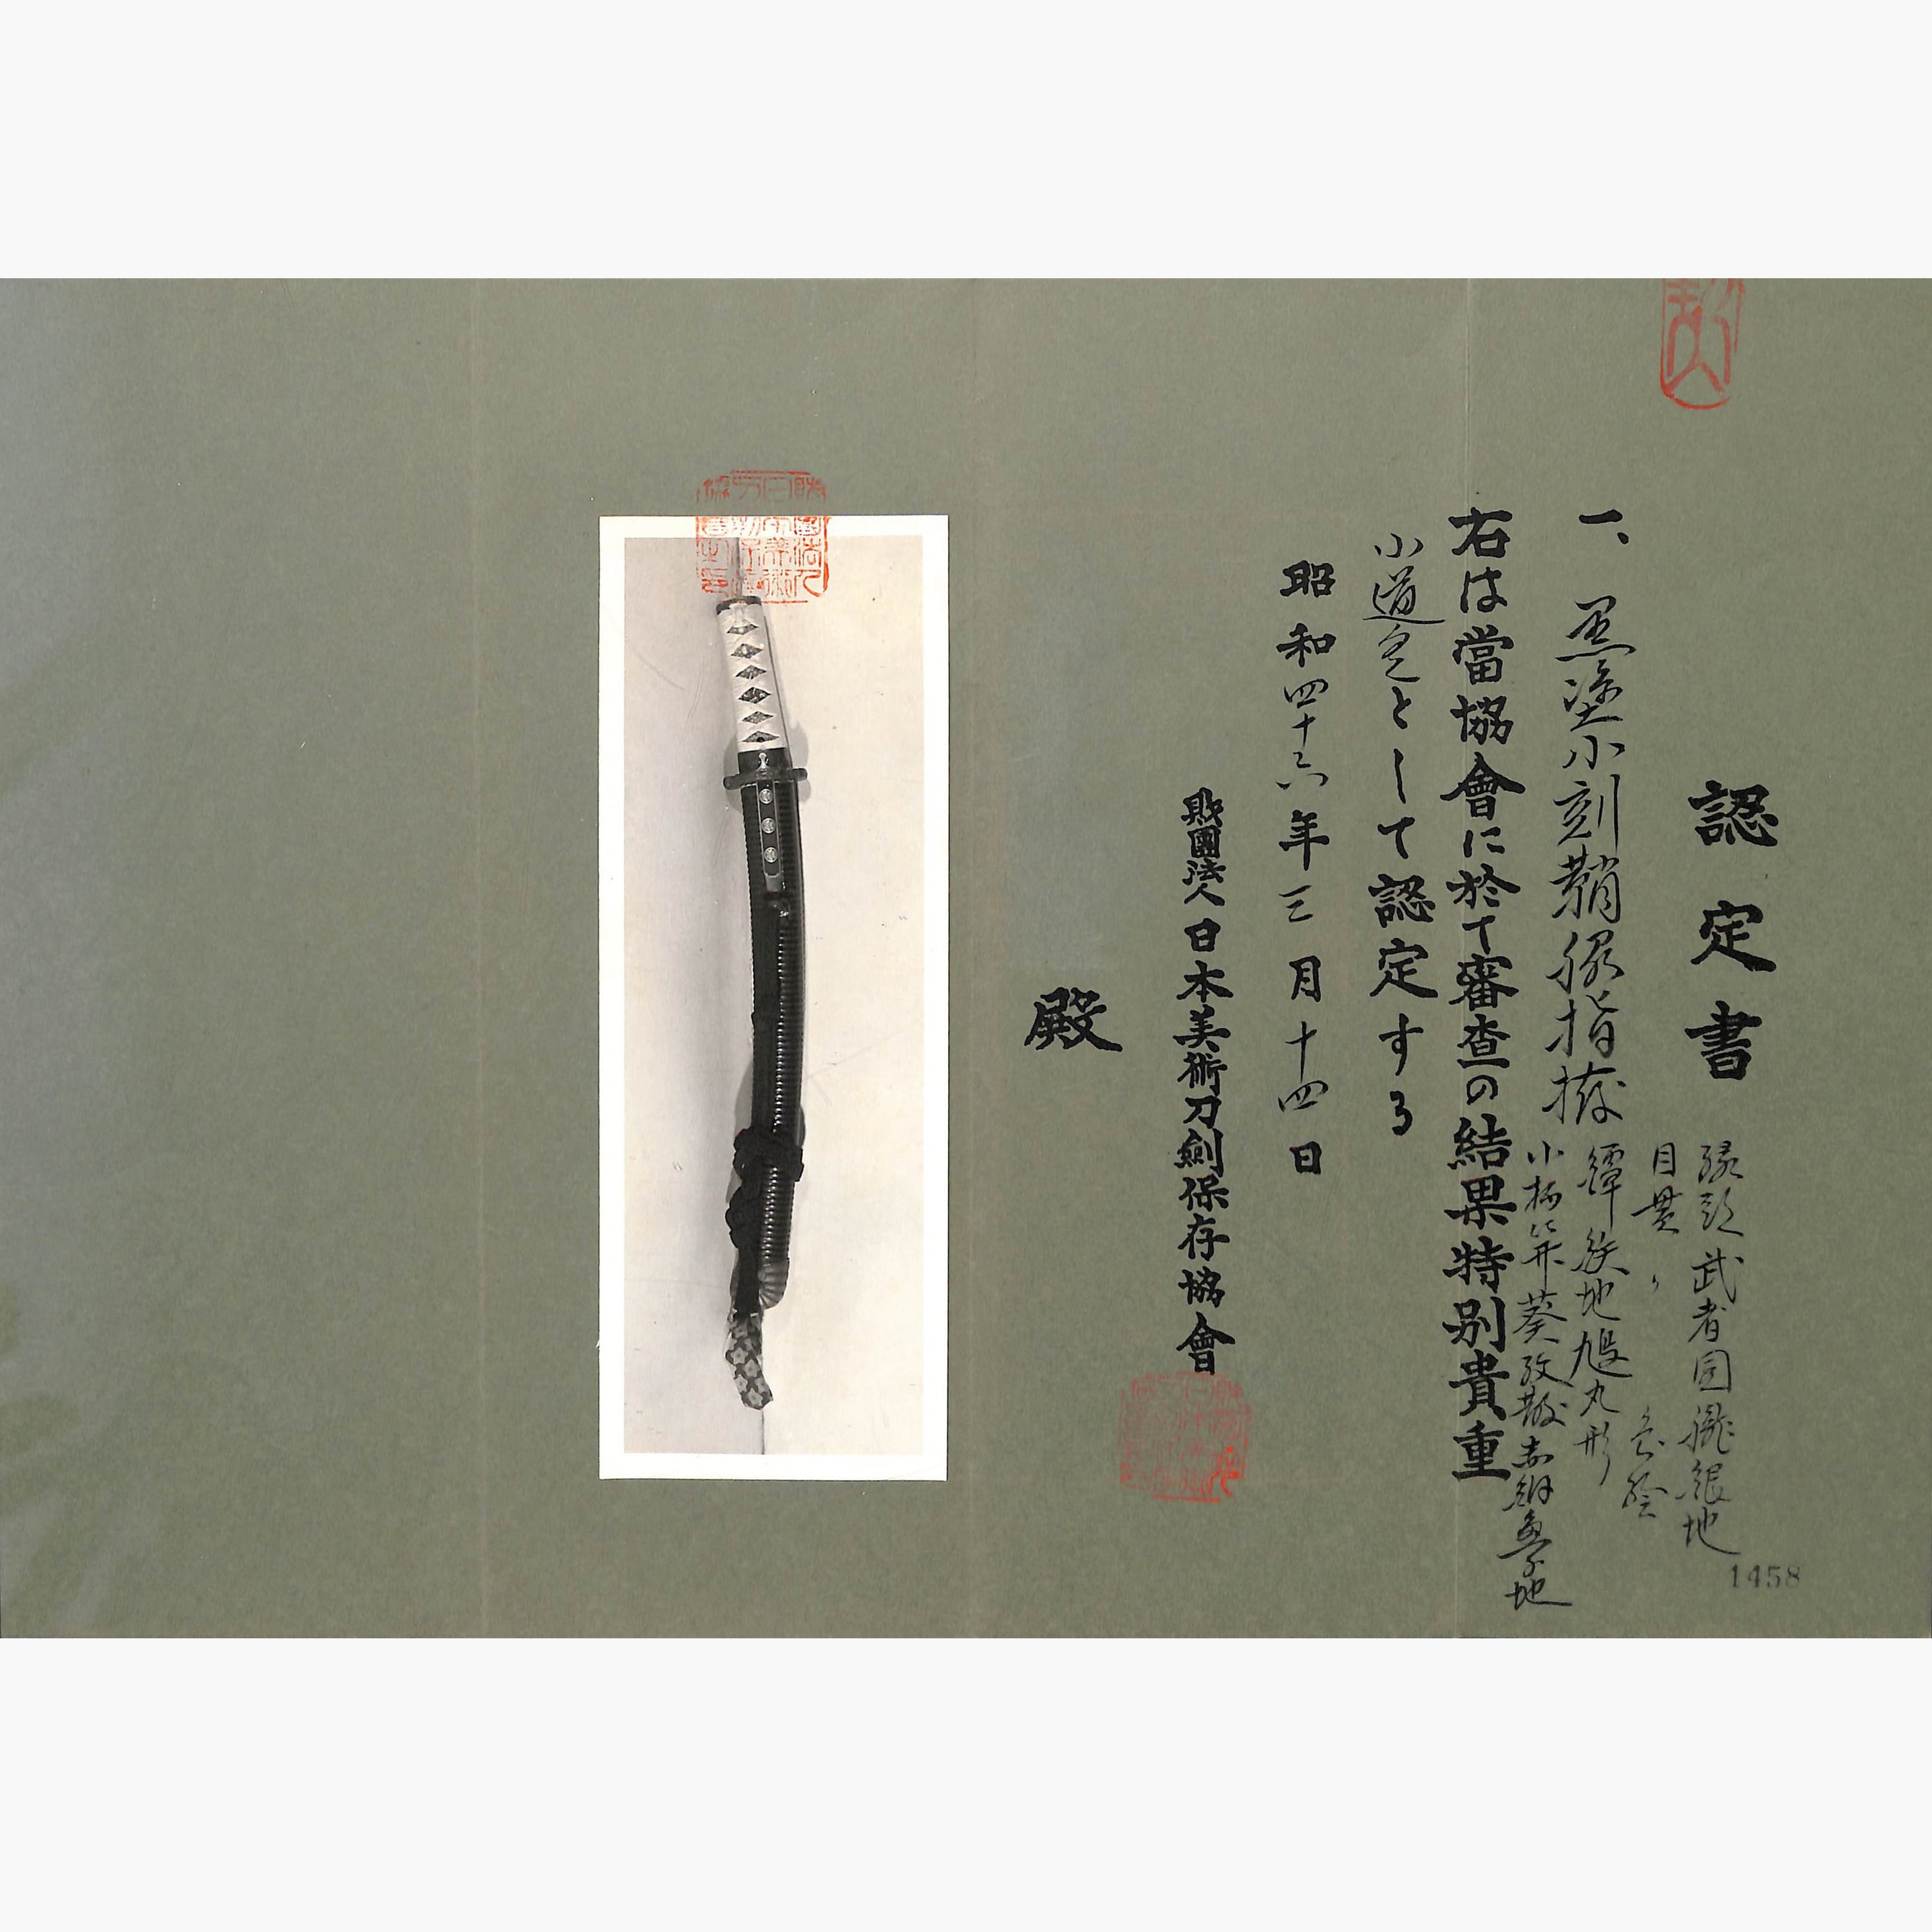 認定書
一、黒塗小刻鞘脇指拵
縁頭 武者図 朧銀地
目貫 〃 色絵
鐔 鉄地 丸形
小柄笄 葵紋散 赤銅魚子地
右は當協會に於て審査の結果特別貴重
小道具として認定する
昭和四十六年三月十四日
財團法人日本美術刀劍保存協會
殿
1458